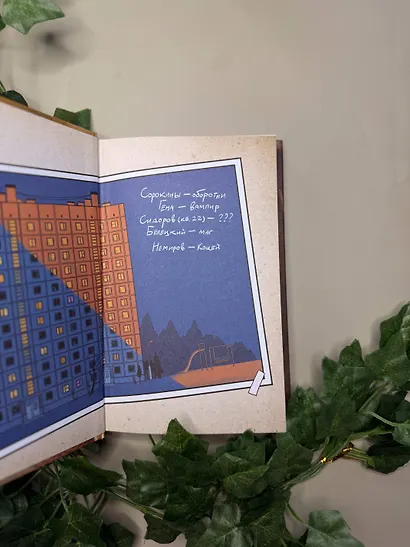 Сорокины – оборотни
Гена – вампир
Сидоров (кв. 22) – ???
Белецкий – маг
Немиров – Кощей